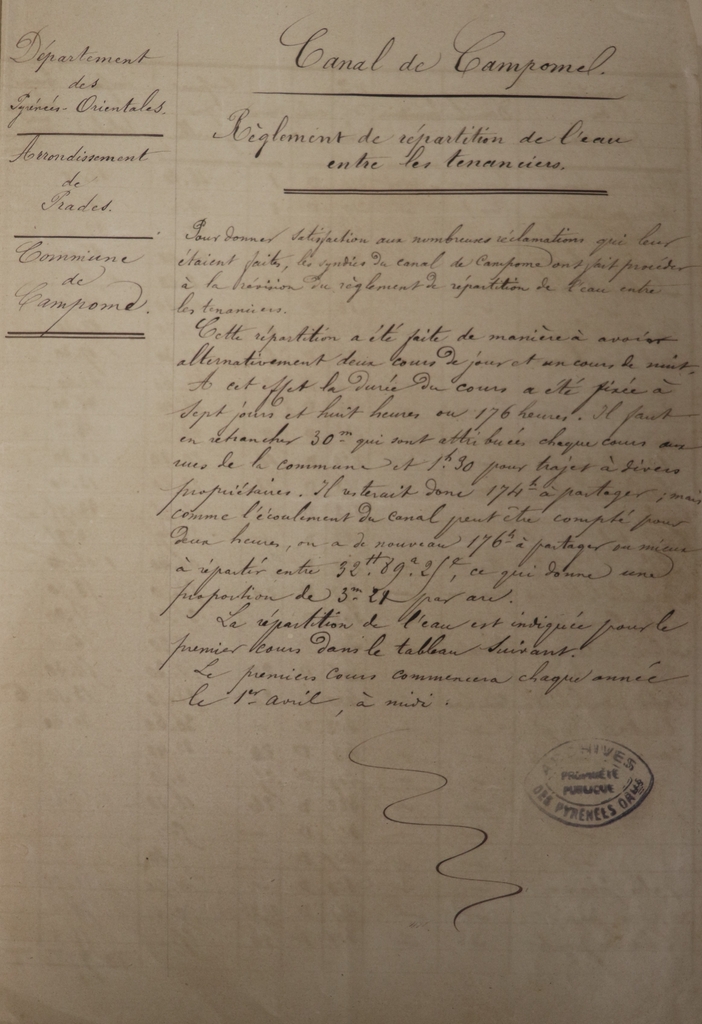 Département
des
Pyrénées-Orientales.
Arrondissement
de
Prades.
Commune
de
Campome.
Canal de Campome.
Règlement de répartition de l'eau
entre les tenanciers.
Pour donner satisfaction aux nombreuses réclamations qui leur
étaient faites, les syndics du canal de Campome ont fait procéder
à la révision du règlement de répartition de l'eau entre
les tenanciers.
Cette répartition a été faite de manière à avoir
alternativement deux cours de jour et un cours de nuit.
A cet effet la durée du cours a été fixée à
sept jours et huit heures ou 176 heures. Il faut
en retrancher 30m qui sont attribuées chaque cours aux
rues de la commune et 1h30 pour trajet à divers
propriétaires. Il resterait donc 174h à partager ; mais
comme l'écoulement du canal peut être compté pour
deux heures, on a de nouveau 176h à partager ou mieux
à répartir entre 32 89a 25c, ce qui donne une
proportion de 3m 21 par are.
La répartition de l'eau est indiquée pour le
premier cours dans le tableau suivant.
Le premier cours commencera chaque année
le 1er avril, à midi.
ARCHIVES
PROPRIÉTÉ
PUBLIQUE
DES PYRÉNÉES ORles